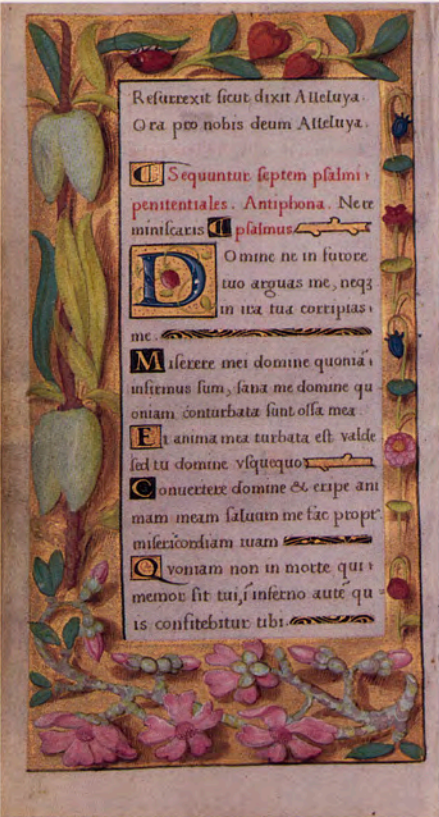 Resurrexit sicut dixit Alleluya.
Ora pro nobis deum Alleluya.
Sequuntur septem psalmi
penitentiales. Antiphona. Ne re
miniscaris psalmus
Domine ne in furore
tuo arguas me, neqȝ
in ira tua corripias
me.
Miserere mei domine quoniã
infirmus sum, sana me domine qu
oniam conturbata sunt ossa mea.
Et anima mea turbata est valde
sed tu domine vsquequo
Conuertere domine & eripe ani
mam meam saluum me fac propt'
misericordiam tuam
Qvoniam non in morte qui
memor sit tui, ĩ inferno autẽ qu
is confitebitur tibi.